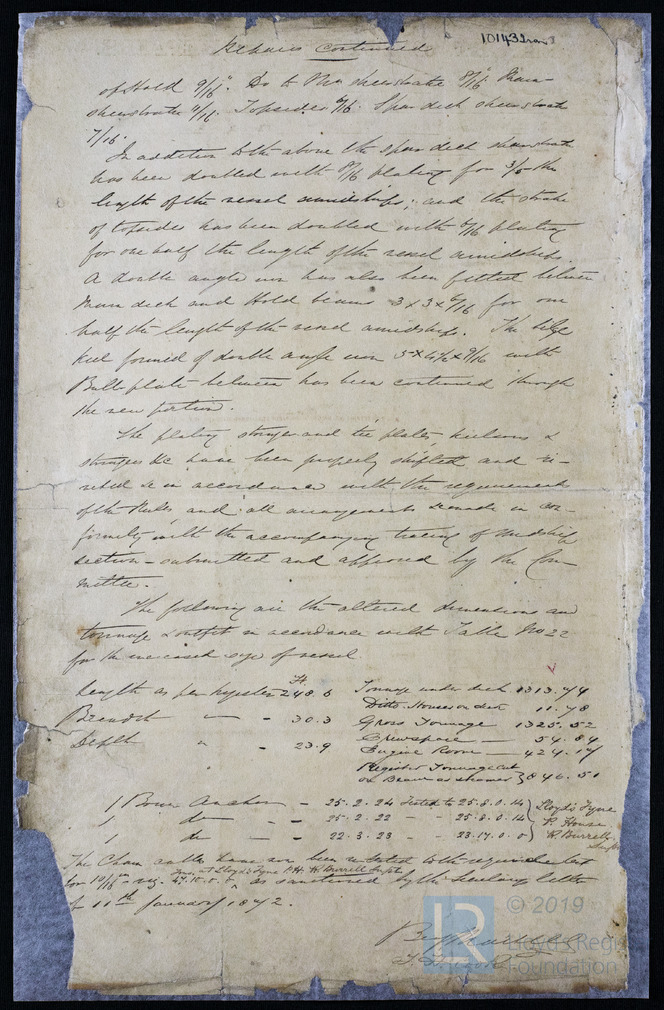 Repairs Continued
of Hold 9/16". Do to Main sheerstrake 8/16. Main
sheerstrake 11/16. Topsides 6/16. Spar deck sheerstrake
7/16.
In addition to the above the spar deck sheerstrake
has been doubled with 8/16 plating for 3/5 the
length of the vessel amidships; and the strake
of topsides has been doubled with 6/16 plating
for one half the length of the vessel amidships.
A double angle iron has also been fitted between
Main deck and Hold beams 3 x 3 x 6/16 for one
half the length of the vessel amidships. The bilge
keel formed of double angle iron 5 x 4½ x 9/16 with
Bulb plate between has been continued through
the new portion.
The plating stringer and tie plates, keelsons &
stringers &c have been properly shifted and ri-
veted &c in accordance with the requirements
of the Rules and all arrangements made in con-
formity with the accompanying tracing of Midship
section - submitted and approved by the Com-
mittee.
The following are the altered dimensions and
tonnage & outfit in accordance with Table No 22
for the increased size of vessel.
Length as per register 248.6 Tonnage under deck 1313.74
Ditto Houses on deck 11.78
Breadth " - 30.3 Gross Tonnage 1325.52
Crewspace 54.84
Depth " - 23.9 Engine Room 424.17
Register Tonnage cut
on Beam as steamer } 846.51
1 Bower Anchor - 25.2.24 Tested to 25.8.0.14 } Lloyd's Tyne
1 do - 25.2.22 - - 25.8.0.14 } P. House
1 do - 22.3.23 - - 23.17.0.0 } W Burrell
The Chain cables have now been tested to the required test
for 1 10/16" - viz. 47.10.0.0 as sanctioned by the Secretary's letter
of 11th January 1872.
101432
© 2019
LR
Lloyd's Register
Foundation